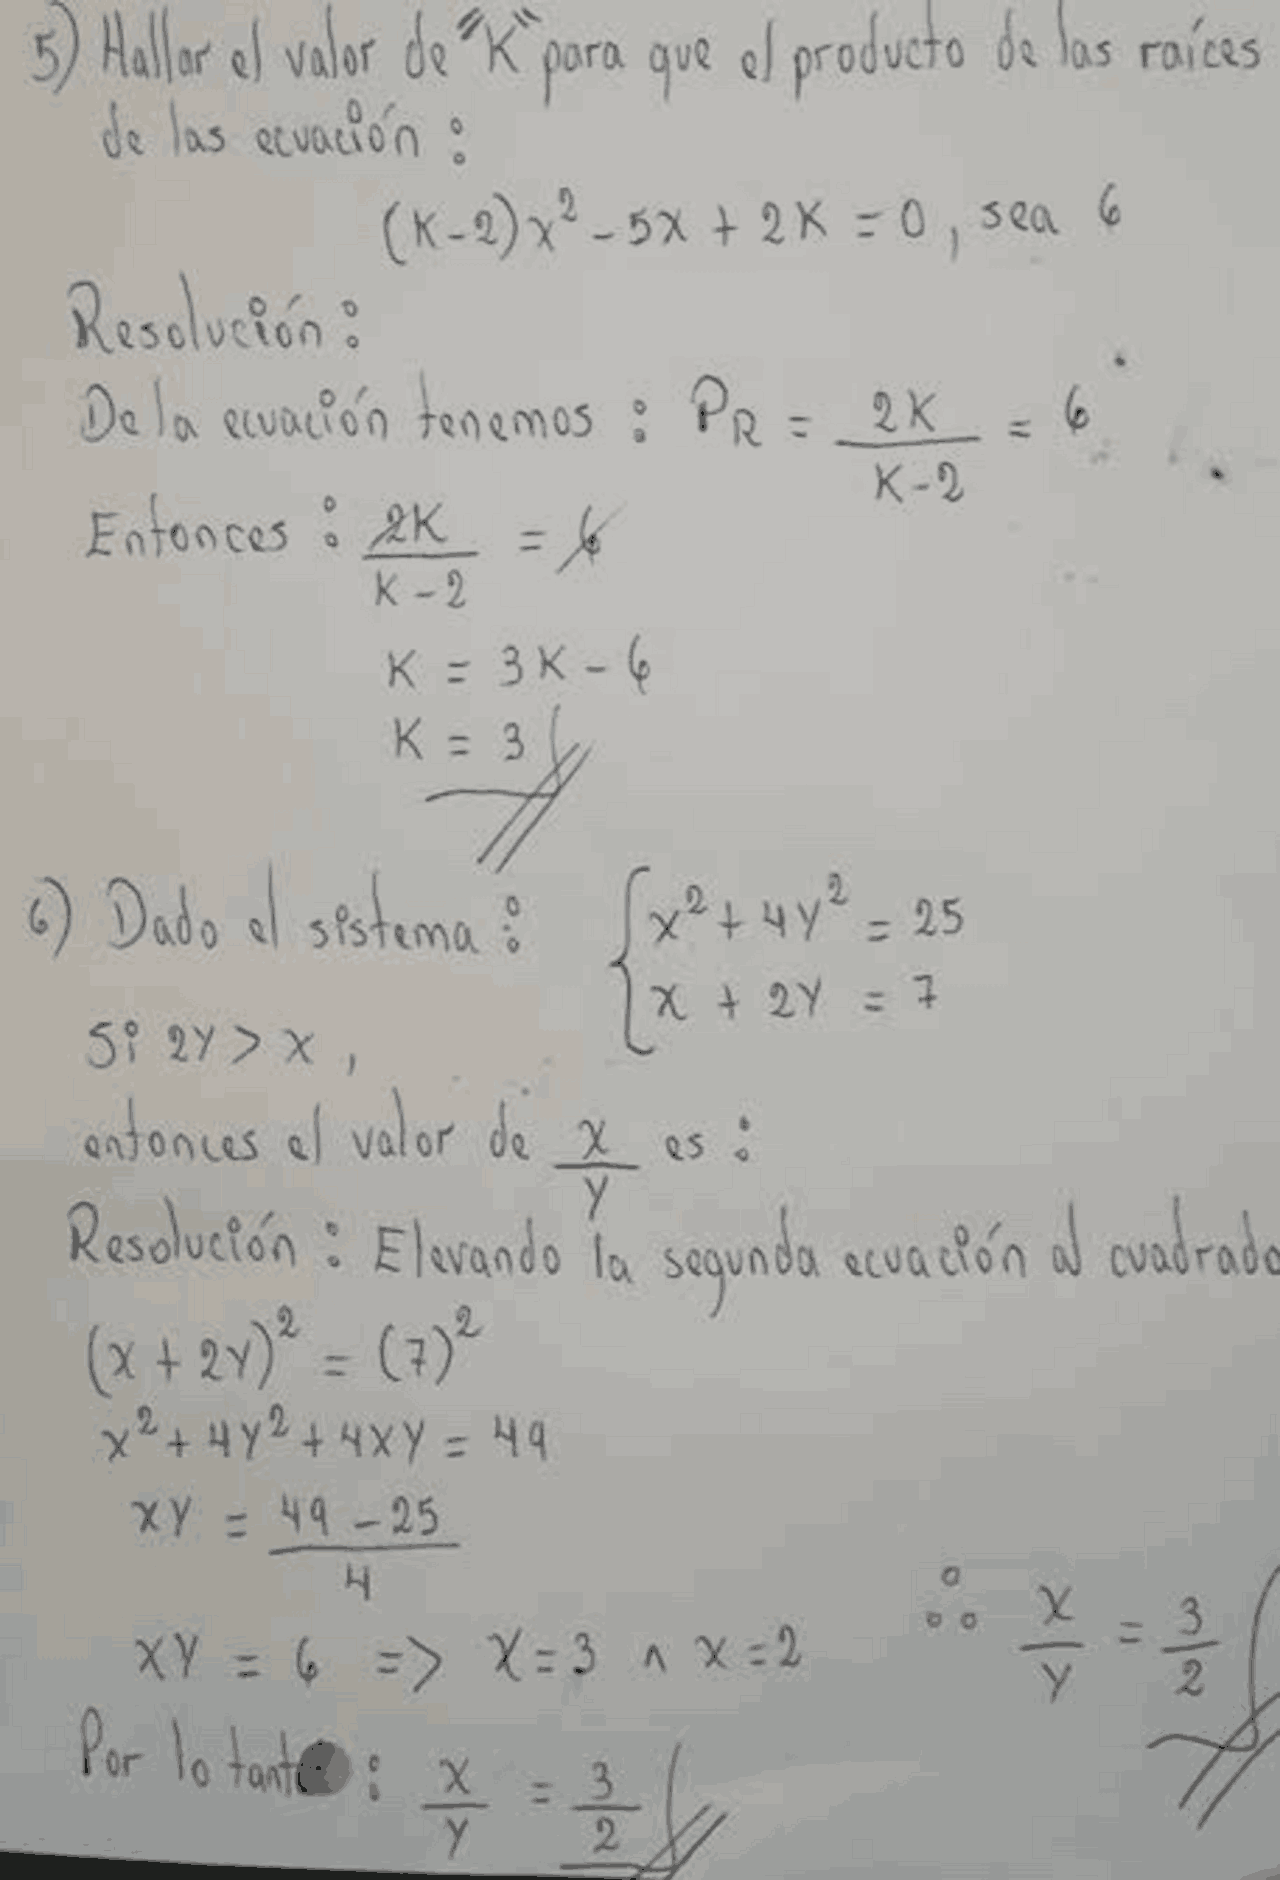 5) Hallar el valor de "K" para que el producto de las raíces
de las ecuación :
(K-2)x² - 5x + 2K = 0, sea 6
Resolución :
De la ecuación tenemos : PR = 2K / K-2 = 6
Entonces : 2K / K-2 = 6
K = 3K - 6
K = 3
6) Dado el sistema : { x² + 4y² = 25
x + 2y = 7
Si 2y > x ,
entonces el valor de x/y es :
Resolución : Elevando la segunda ecuación al cuadrado
(x + 2y)² = (7)²
x² + 4y² + 4xy = 49
xy = 49 - 25 / 4
xy = 6 => x = 3 ∧ x = 2
∴ x/y = 3/2
Por lo tanto : x/y = 3/2